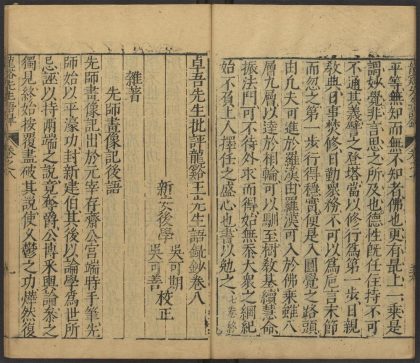 平等無知而無不知者佛也更有最上一乘是
謂妙覺非言思之所及也德性旣任住持不可
不通其義譬之登塔當以修行為第一步日親
敎典日事焚修日勤衆務不可以為巵言末節
而忽之第一步行得穩實便是入圓覺之路頭
由凡夫可進於羅漢由羅漢可入於佛乘雖八
層九層以達於相輪可以馴至樹教基續慧命
振法門可不待外求而得始無忝大衆之綱紀
始不負主人擇任之盛心也書以勉之
七卷終
卓吾先生批評龍谿王先生語錄鈔卷八
新安後學
吳可期
吳可善
校正
雜著
先師畫像記後語
先師畫像記出於元宰存齋公宮端時手筆先
師始以平濠功封新建伯其後以論學為世所
忌誣以持兩端之說竟奪爵公傅采輿論參之
獨見終始按覆盡破其說使久鬱之功燁然復